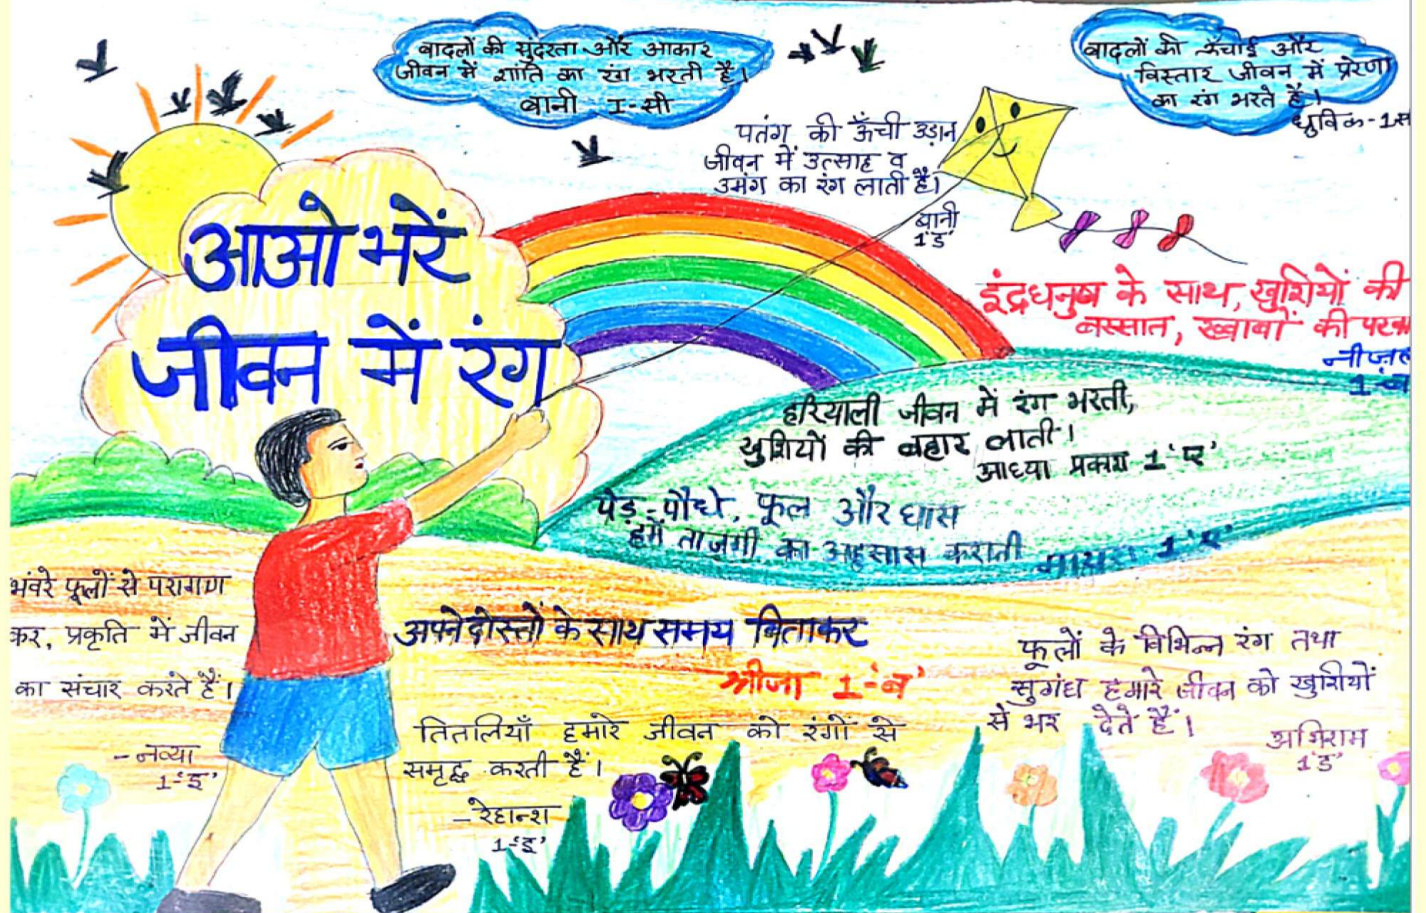 बादलों की सुंदरता और आकार
जीवन में शांति का रंग भरती है।
बानी I-सी
बादलों की ऊँचाई और
विस्तार जीवन में प्रेरणा
का रंग भरते हैं।
ध्रुविक-1
पतंग की ऊँची उड़ान
जीवन में उत्साह व
उमंग का रंग लाती है।
बानी
1'ड'
आओ भरें
जीवन में रंग
इंद्रधनुष के साथ, खुशियों की
बरसात, ख्वाबों की
1-ब
हरियाली जीवन में रंग भरती,
खुशियों की बहार लाती।
आध्या प्रकाश 1'ए'
पेड़-पौधे, फूल और घास
हमें ताजगी का अहसास कराती 1'ए'
भंवरे फूलों से परागण
कर, प्रकृति में जीवन
का संचार करते हैं।
- नव्या
1-'इ'
अपने दोस्तों के साथ समय बिताकर
श्रीजा 1-'ब'
तितलियाँ हमारे जीवन को रंगों से
समृद्ध करती हैं।
- रेहान्श
1-'इ'
फूलों के विभिन्न रंग तथा
सुगंध हमारे जीवन को खुशियों
से भर देते हैं।
अभिराम
1'ड'